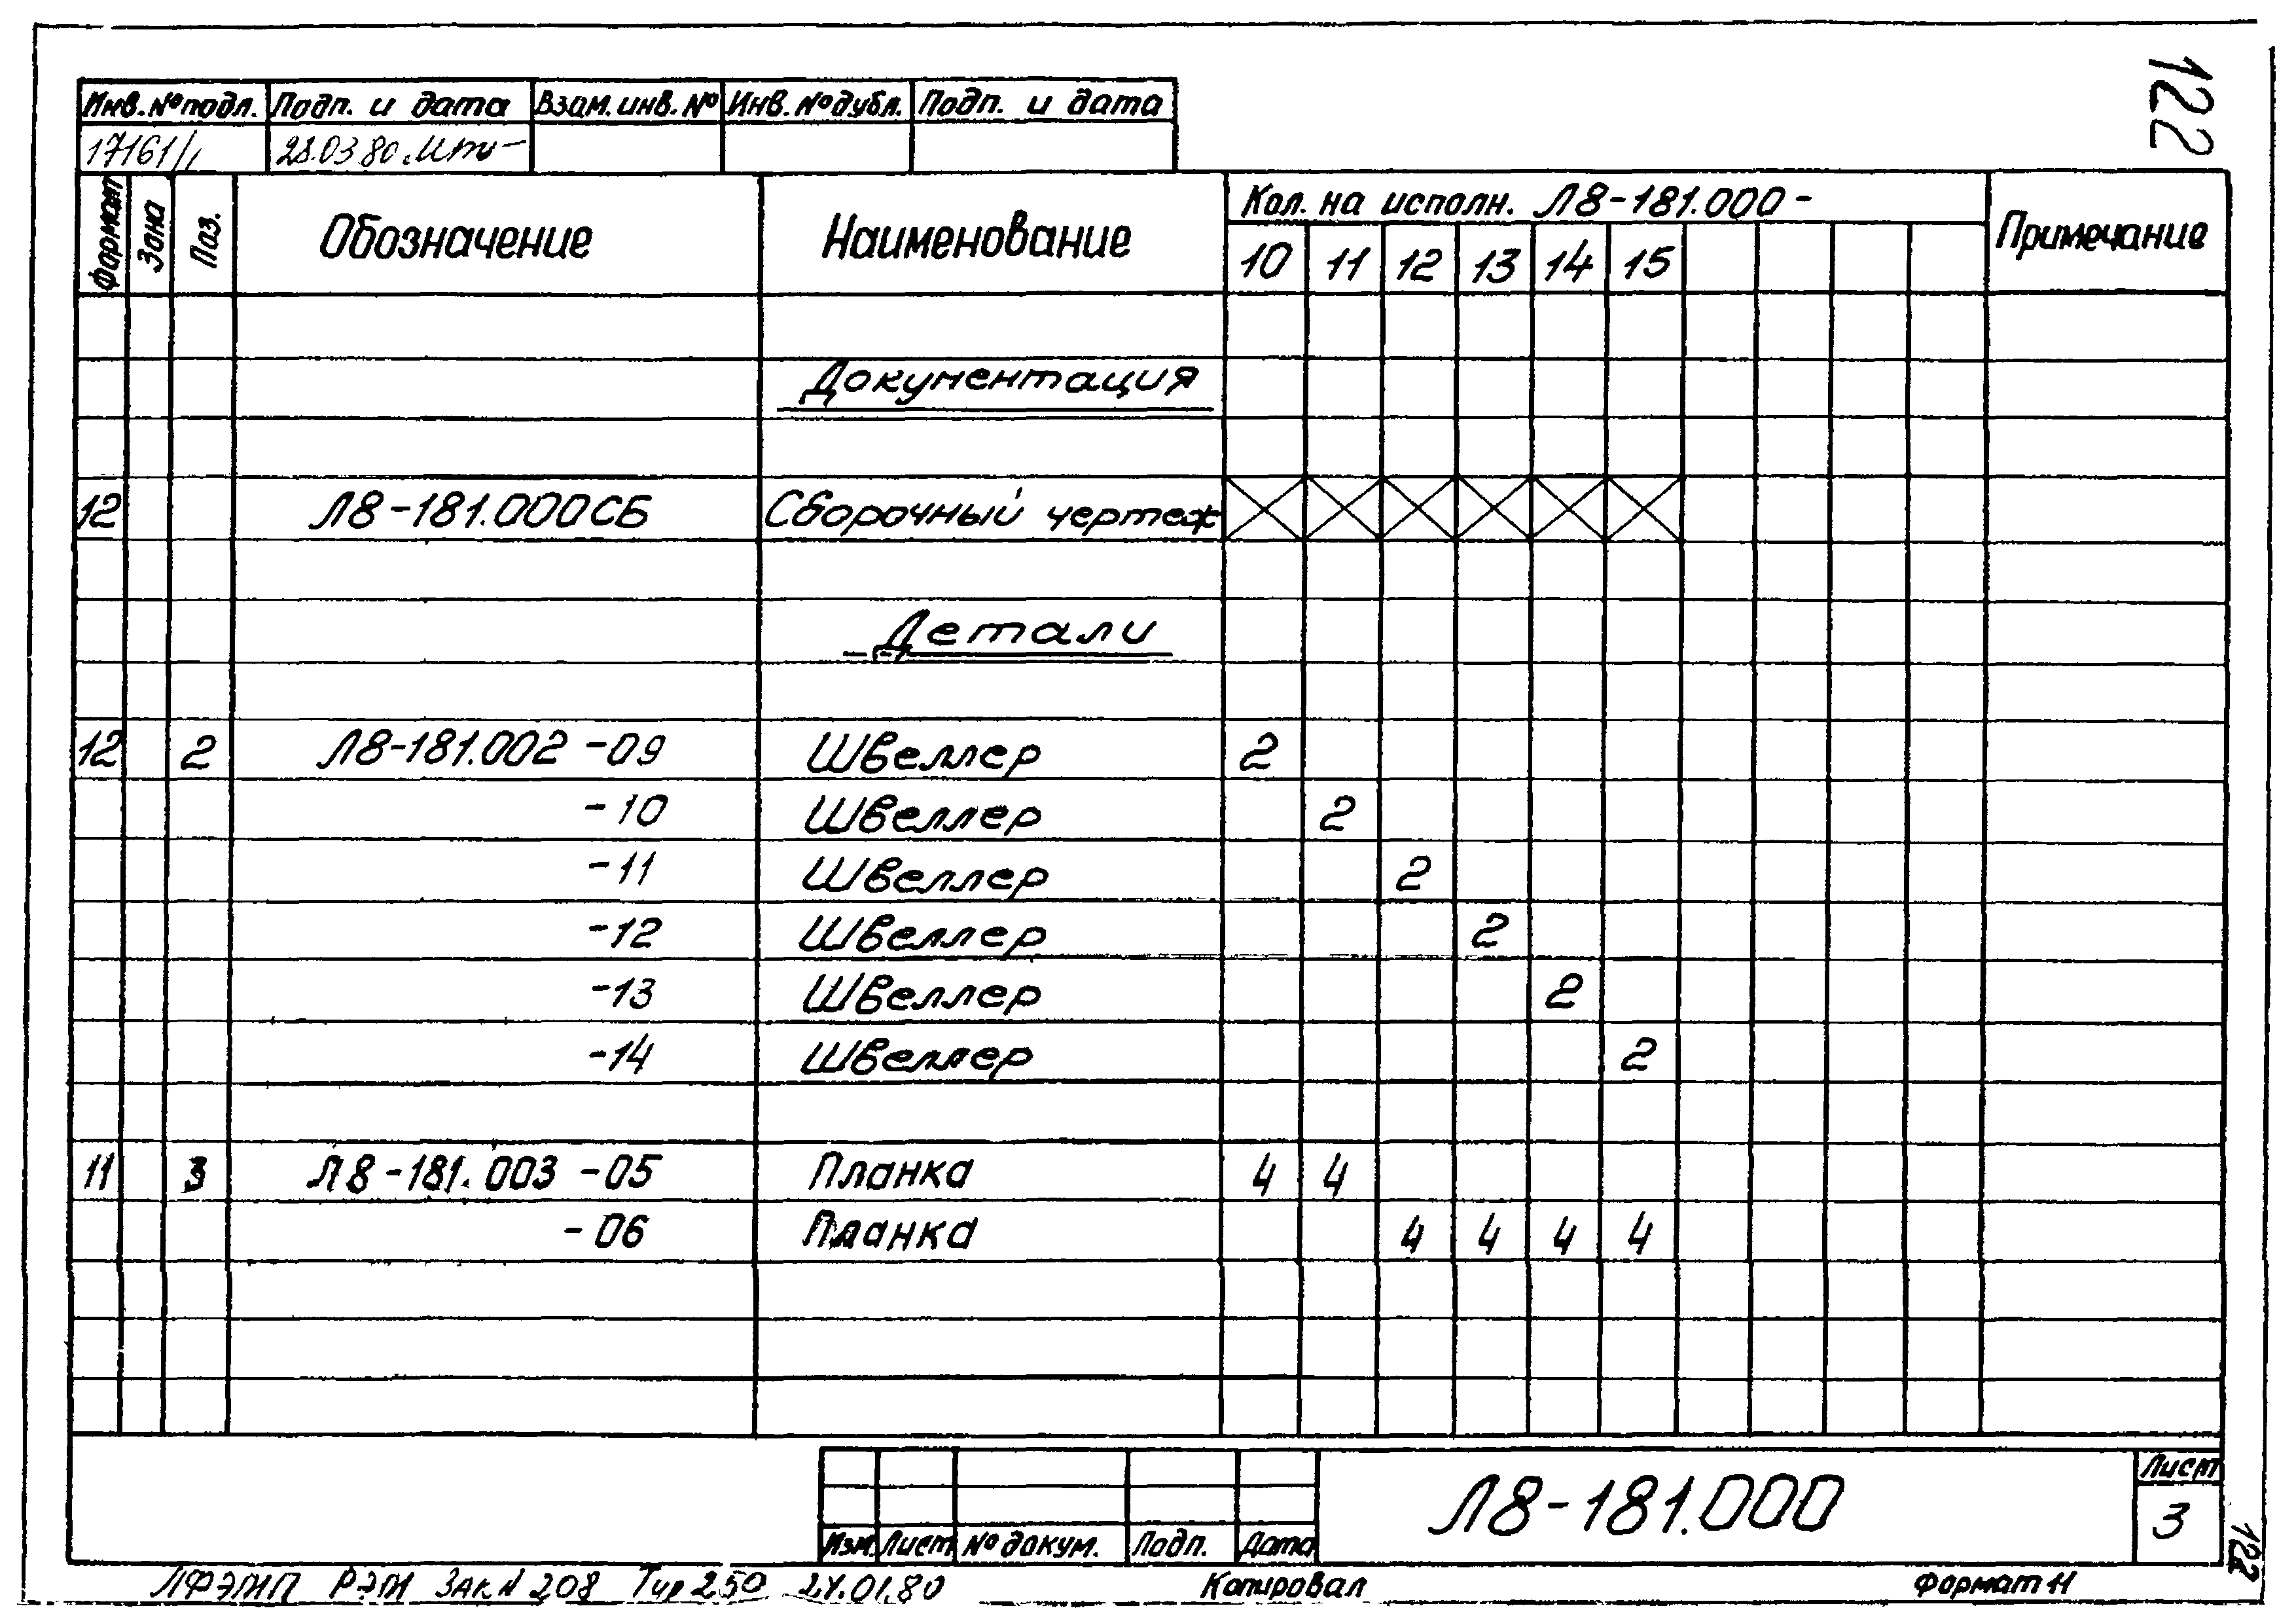 122
Инв.№подл. Подп. и дата Взам.инв.№ Инв.№дубл. Подп. и дата
17161/1 28.03.80
Формат Зона Поз. Обозначение Наименование Кол. на исполн. Л8-181.000- Примечание
10 11 12 13 14 15
Документация
12 Л8-181.000СБ Сборочный чертеж
Детали
12 2 Л8-181.002 -09 Швеллер 2
-10 Швеллер 2
-11 Швеллер 2
-12 Швеллер 2
-13 Швеллер 2
-14 Швеллер 2
11 3 Л8-181.003 -05 Планка 4 4
-06 Планка 4 4 4 4
Изм. Лист № докум. Подп. Дата
Л8-181.000
Лист
3
122
ЛФЭПИП РЭМ Зак N 208 Тир 250 24.01.80 Копировал Формат 11